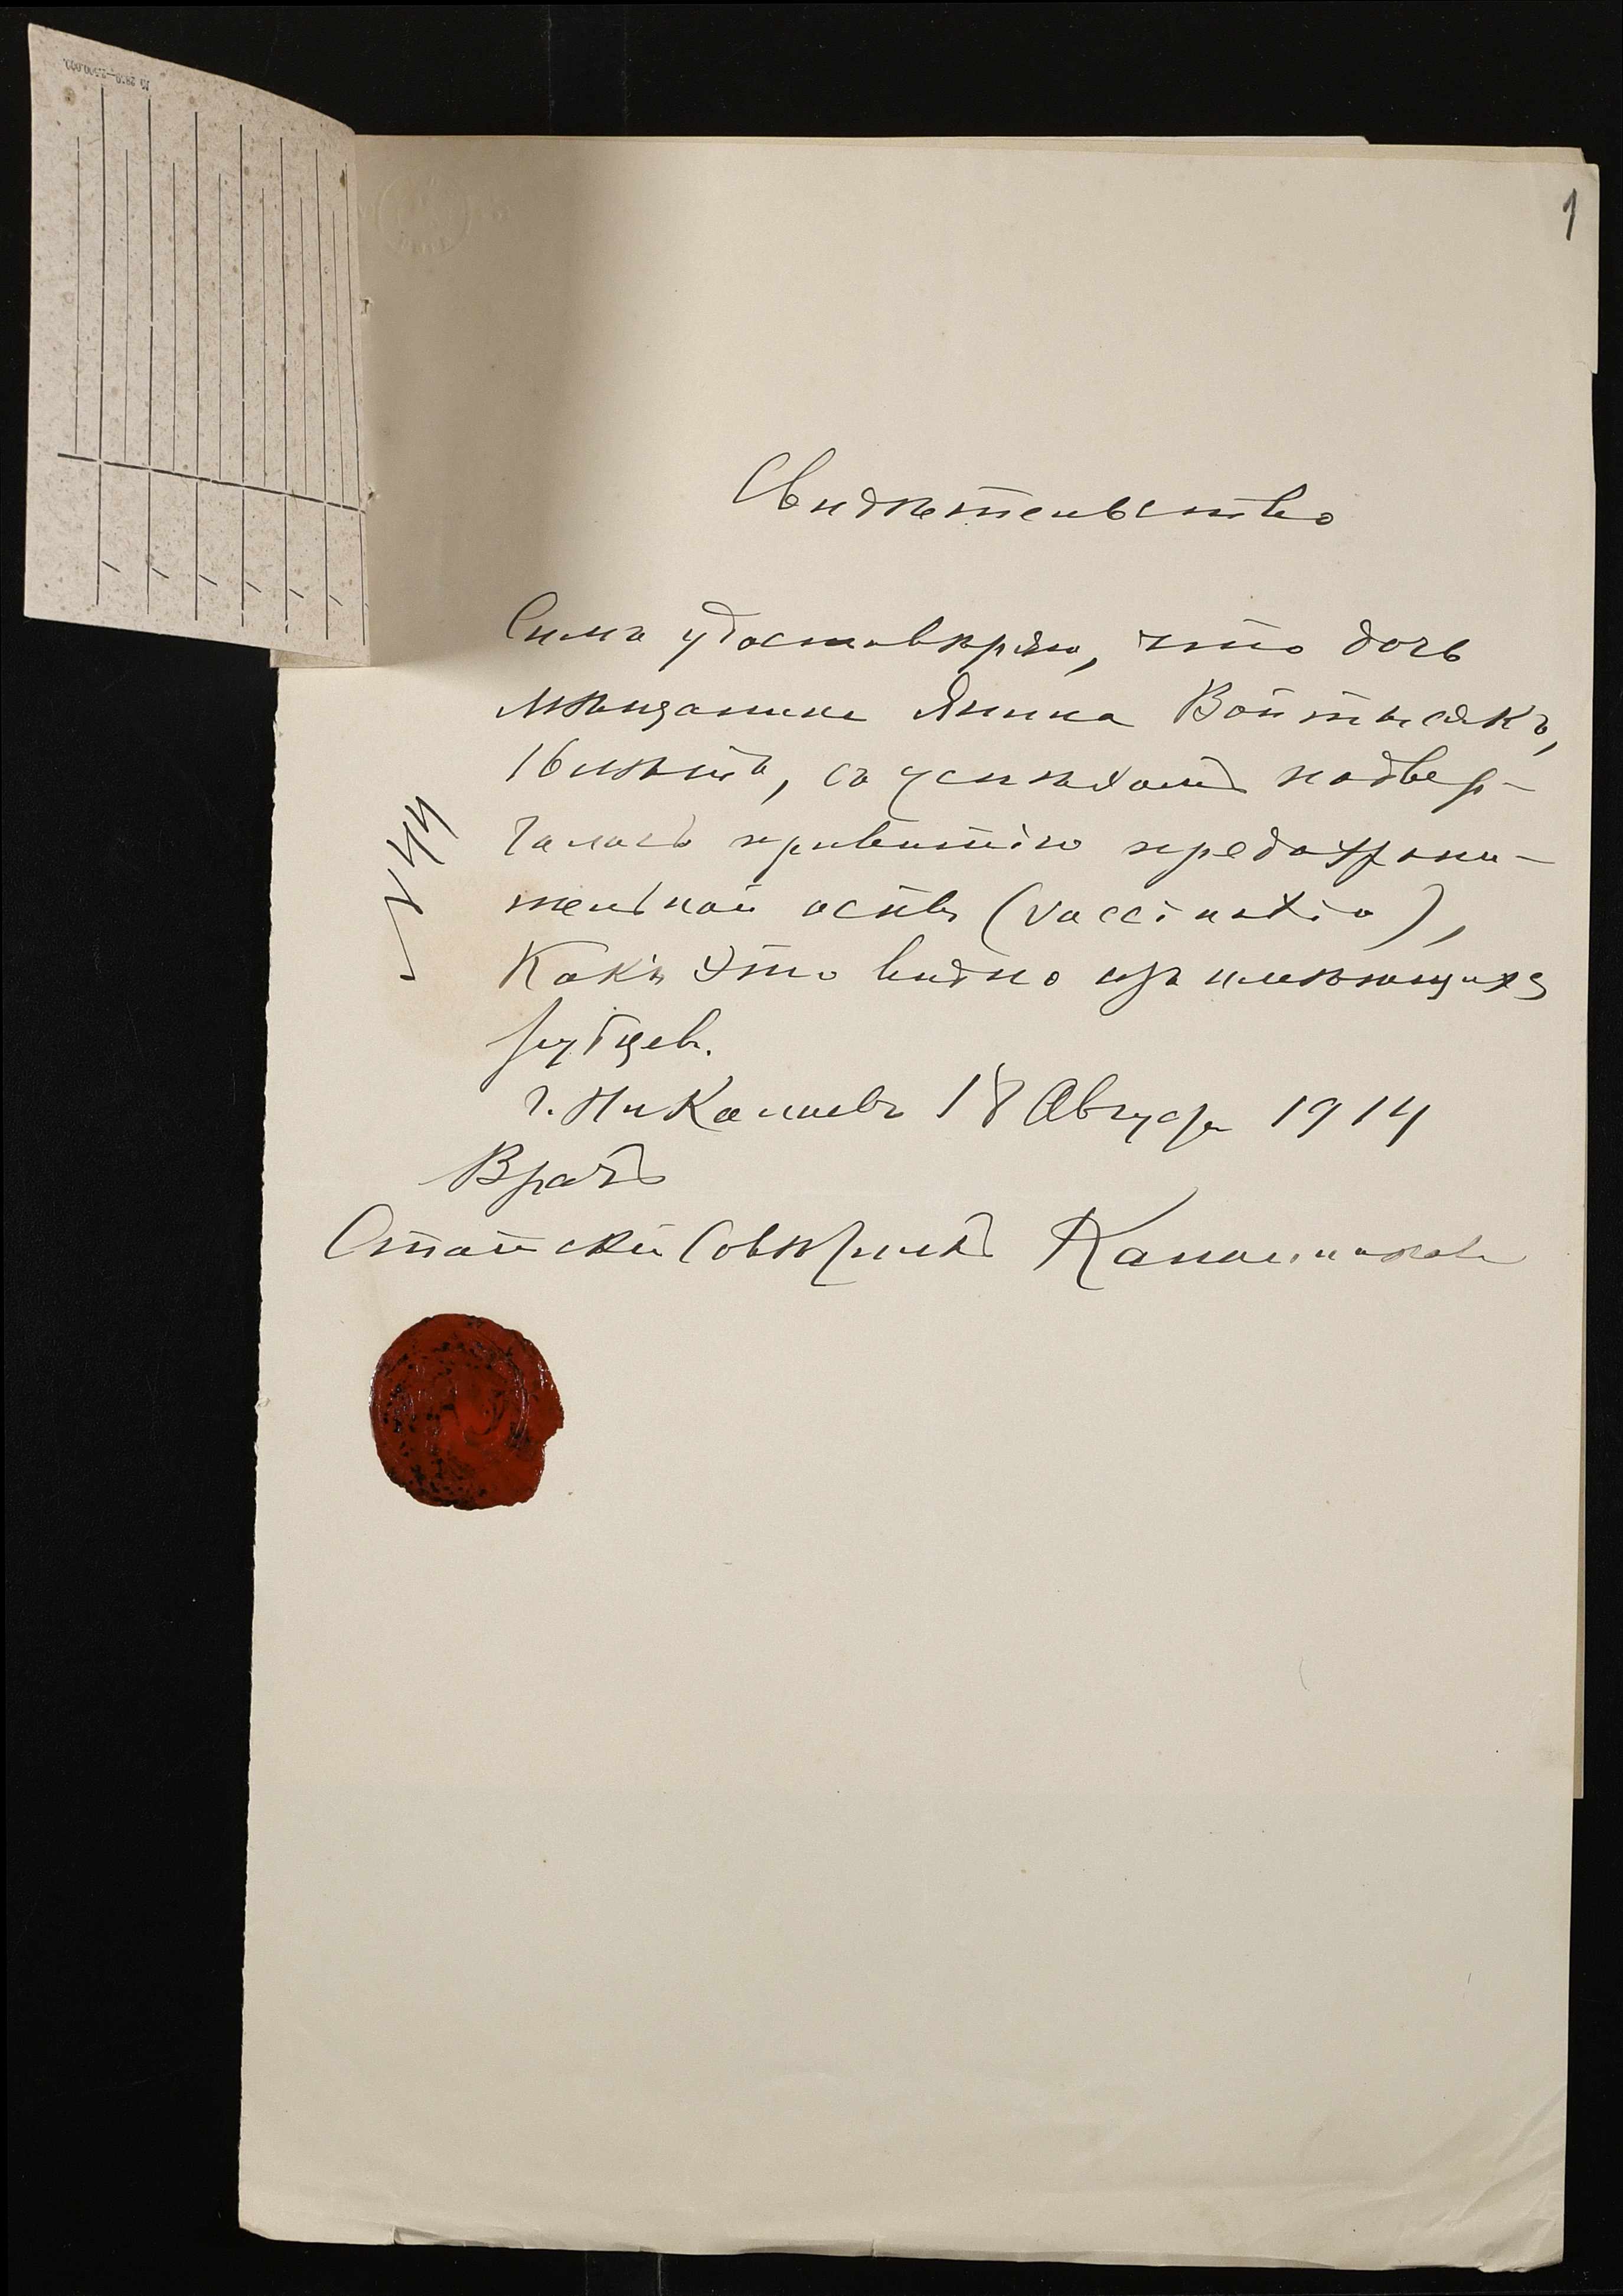 1
Свидѣтельство
Симъ удостовѣряю, что дочь
мѣщанина Янина Войтысякъ,
16 лѣтъ, съ успѣхомъ подвер-
галась привитію предохрани-
тельной оспы (vaccinatio),
какъ это видно изъ имѣющихся
рубцевъ.
г. Николаевъ 18 Августа 1914
Врачъ
Статскій Совѣтникъ